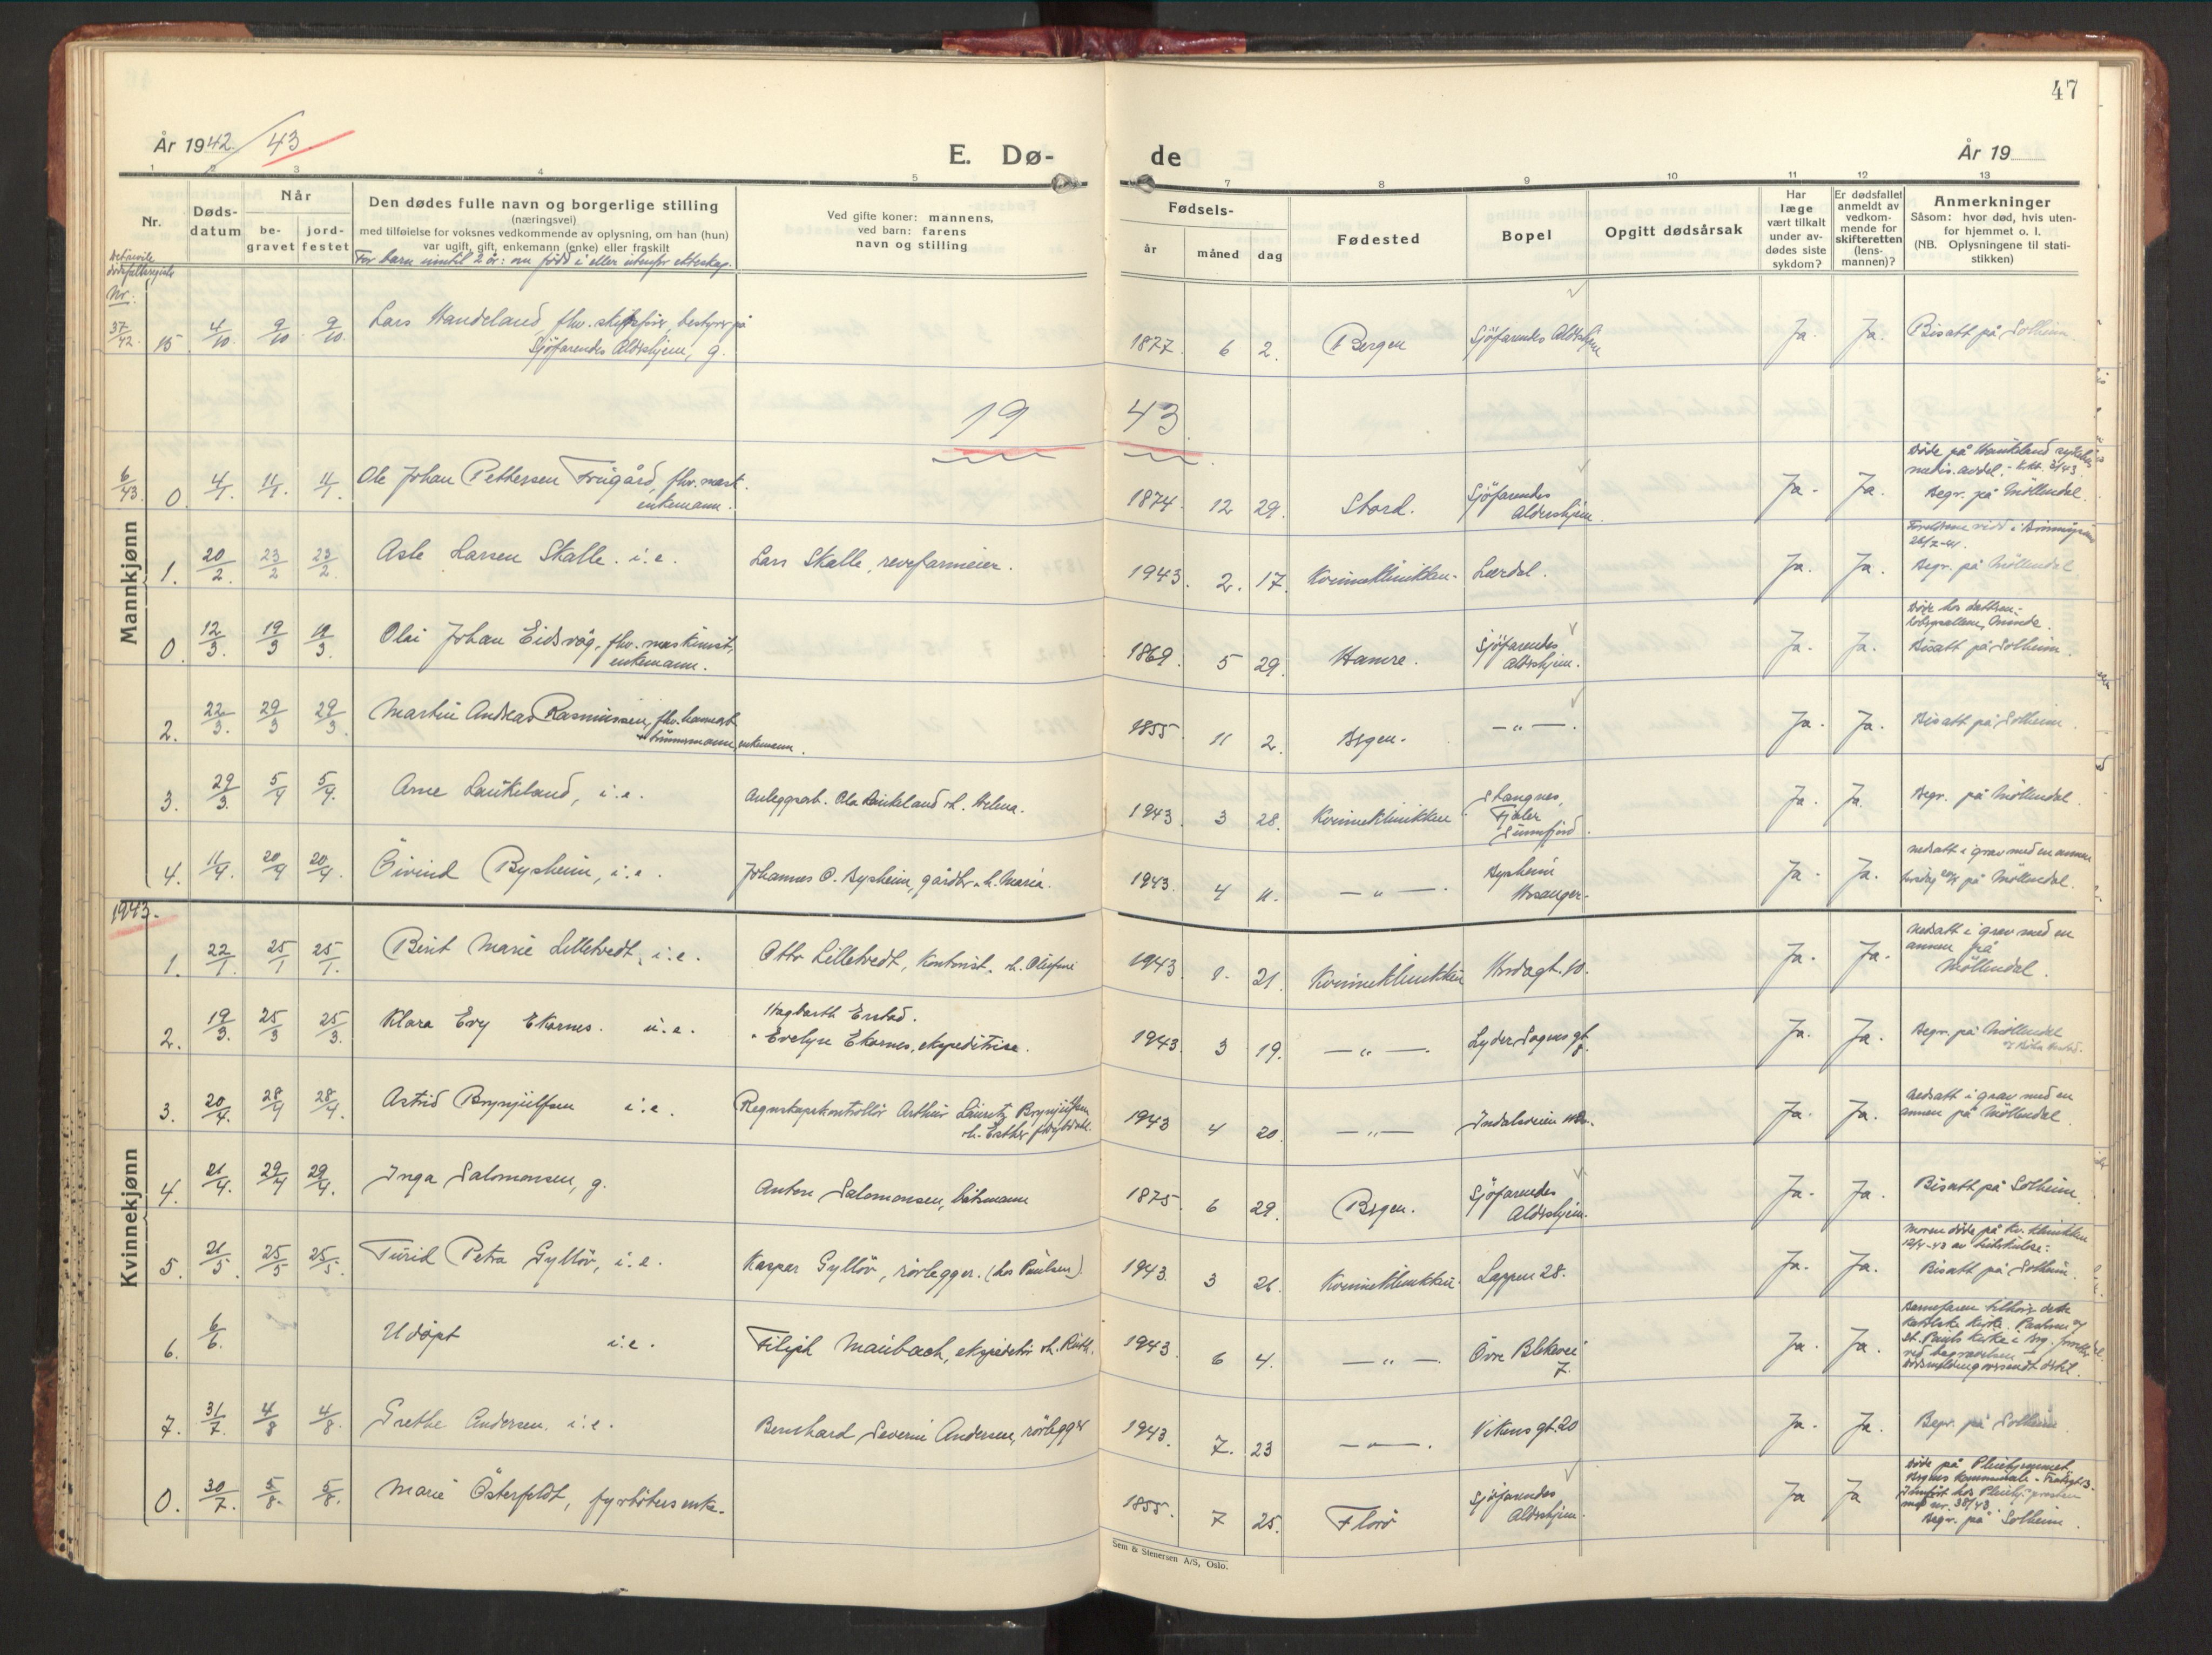 47
År 1942/43
E. Dø-
de
År 19
1 2 3 4 5 7 8 9 10 11 12 13
Nr.
Døds-
datum
Når
be-
gravet
jord-
festet
Den dødes fulle navn og borgerlige stilling
(næringsvei)
med tilføielse for voksnes vedkommende av oplysning, om han (hun)
var ugift, gift, enkemann (enke) eller fraskilt
For barn inntil 2 år: om född i eller utenfor ekteskap.
Ved gifte koner: mannens,
ved barn: farens
navn og stilling
Fødsels-
år
måned
dag
Fødested
Bopel
Opgitt dødsårsak
Har
læge
vært tilkalt
under av-
dødes siste
sykdom?
Er dødsfallet
anmeldt av
vedkom-
mende for
skifteretten
(lens-
mannen)?
Anmerkninger
Såsom: hvor død, hvis uten-
for hjemmet o. l.
(NB. Oplysningene til stati-
stikken)
Nr.
37/42. 15 4/10. 9/10. 9/10. Lars Handeland, fhv. skipsfører, bestyrer på
Sjöfarendes Aldershjem, g.
1877. 6 2. Bergen Sjöfarendes Aldershjem Ja. Ja. Bisatt på Solheim.
19 43
Mannkjønn
6/43. 0. 4/1. 11/1. 11/1. Ole Johan Pettersen Frugård, fhv. mask.
enkemann.
1874. 12 29. Stord. Sjöfarendes
Aldershjem. Ja. Ja. Døde på Haukeland sykehus
medis. avdel.
Begr. på Möllendal.
1. 20/2. 23/2 23/2. Asle Larsen Skalle. i.e. Lars Skalle, revefarmeier.
1943. 2. 17. Kvinneklinikken. Lærdal. Ja. Ja.
Begr. på Möllendal
0. 12/3. 19/3 19/3. Olai Johan Eidsvåg, fhv. maskinist,
enkemann.
1869. 5 29. Hamre. Sjöfarendes
Aldershjem. Ja. Ja. Døde hos datteren
Bisatt på Solheim.
2. 22/3. 29/3 29/3. Martin Andreas Rasmussen, fhv.
enkemann.
1855. 11 2. Bgen. — „ — . Ja. Ja. Bisatt på Solheim.
3. 29/3. 5/4 5/4. Arne Laukeland, i.e. Anleggsarb. Ola Laukeland o.h. Helma.
1943. 3 28. Kvinneklinikken Stangnes,
Fjaler
Sunnfjord. Ja. Ja. Begr. på Möllendal.
4. 11/4. 20/4 20/4. Öivind Bysheim, i.e. Johannes O. Bysheim, gårdbr. o.h. Maria.
1943. 4 11. — „ — Bysheim
Hosanger. Ja. Ja. Nedsatt i grav med en annen
tirsdag 20/4 på Möllendal.
1943.
Kvinnekjønn
1. 22/1. 25/1 25/1. Berit Marie Lilletvedt, i.e. Otto Lilletvedt, kontorist. o.h. Olufine
1943. 1. 21. Kvinneklinikken Hordagt. 10. Ja. Ja. Nedsatt i grav med en
annen på
Möllendal.
2. 19/3. 25/3 25/3. Klara Evy Ekornes. u.e. Hagbarth Erstad.
Evelyn Ekornes, ekspeditrise.
1943. 3 19. — „ — . Lyder Sagens gt. Ja. Ja. Begr. på Möllendal
3. 20/4. 28/4 28/4. Astrid Brynjulfsen i.e. Regnskapskontrollör Arthur Lauritz Brynjulfsen
o.h. Esther
1943 4 20. — „ — Ja. Ja. Nedsatt i grav med en
annen på Möllendal.
4. 21/4. 29/4 29/4. Inga Salomonsen, g. Anton Salomonsen, båtsmann
1875. 6 29. Bgen. Sjöfarendes
Aldershjem. Ja. Ja. Bisatt på Solheim.
5. 21/5. 25/5 25/5. Turid Petra Gyllöv, i.e. Kasper Gyllöv, rörlegger. (hos Paulsen).
1943. 3 26. Kvinneklinikken. Lappen 28. Ja. Ja. Moren døde på Kv. klinikken
12/4-43 av tuberkulose.
Bisatt på Solheim.
6. 6/6. Udöpt i.e. Filiph Maubach, ekspeditör o.h. Ruth.
1943. 6 4. — „ — . Övre Blekevei
7. Ja. Ja. Barnefaren tilhører den
katolske kirke. Pastoren v/
St. Pauls kirke i Brg. forrettet
ved begravelsen
7. 31/7. 4/8 4/8. Grethe Andersen, i.e. Bernhard Severin Andersen, rörlegger
1943. 7. 23 — „ — . Vikens gt. 20 Ja. Ja. Begr. på Solheim.
0. 30/7. 5/8. 5/8. Marie Österfeldt, fyrbøters enke.
1855. 7 25. Florö Sjöfarendes
Aldershjem. Ja Ja Döde på Pleiehjemmet,
Bergens kommunale
nr. 38/43
Begr. på Solheim.
Sem & Stenersen A/S, Oslo.